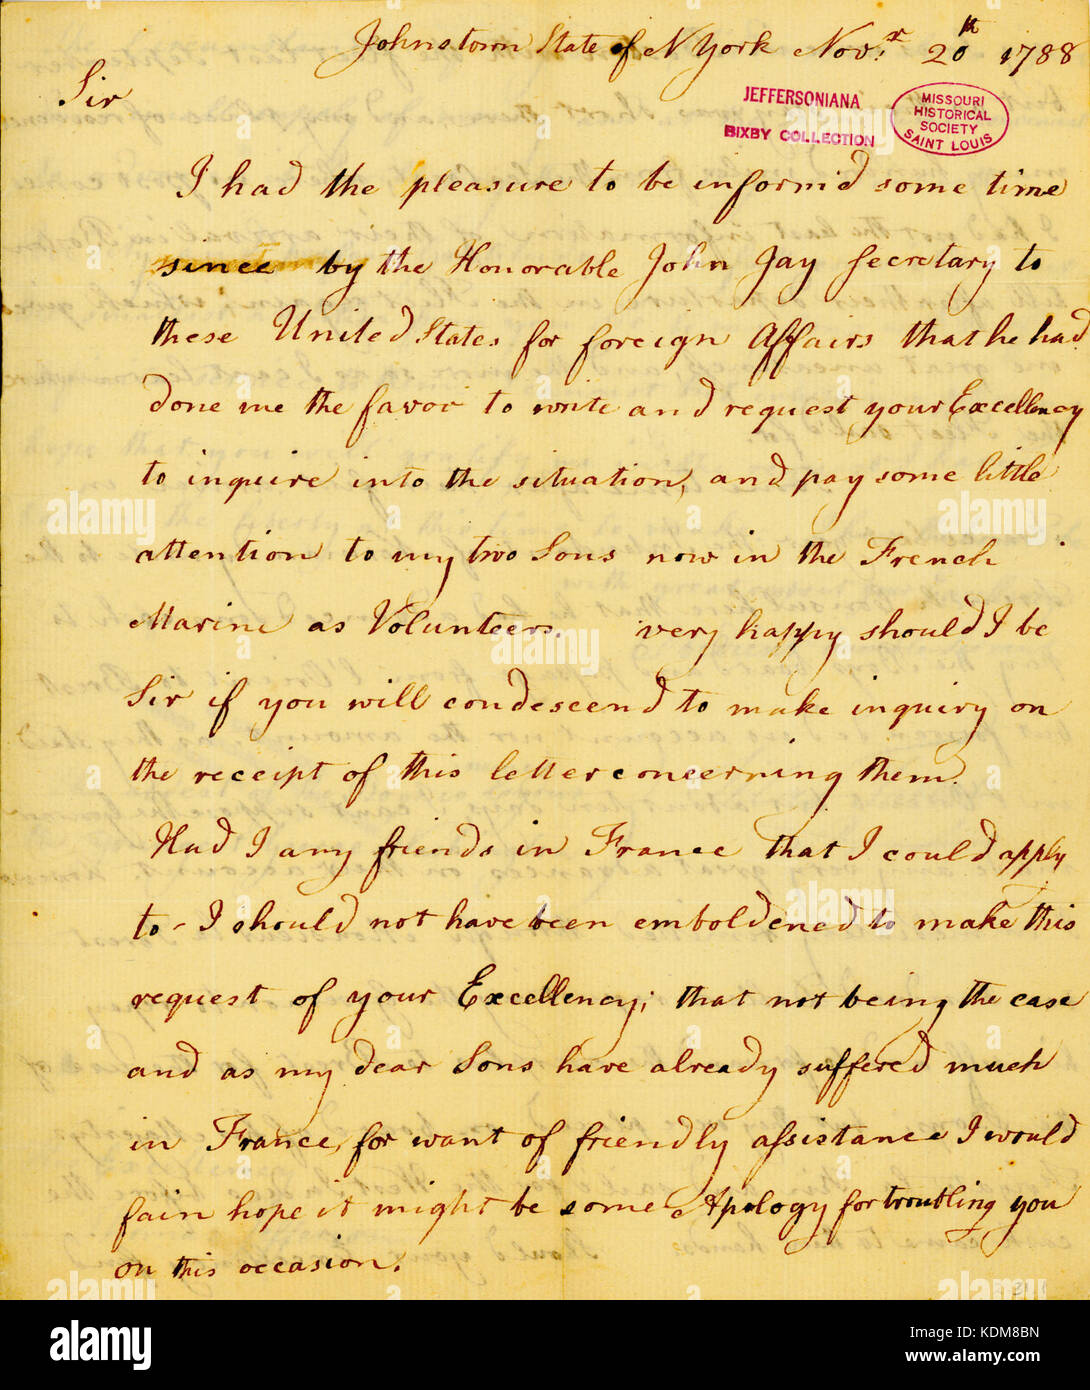 Johnstown State of N York Nov:r 20th 1788
Sir
JEFFERSONIANA
BIXBY COLLECTION
MISSOURI
HISTORICAL
SOCIETY
SAINT LOUIS
I had the pleasure to be inform'd some time
since by the Honorable John Jay Secretary to
these United States for foreign Affairs that he had
done me the favor to write and request your Excellency
to inquire into the situation, and pay some little
attention to my two Sons now in the French
Marine as Volunteers. very happy should I be
Sir if you will condescend to make inquiry on
the receipt of this letter concerning them.
Had I any friends in France that I could apply
to - I should not have been emboldened to make this
request of your Excellency; that not being the case
and as my dear Sons have already suffered much
in France, for want of friendly assistance I would
fain hope it might be some Apology for troubling you
on this occasion.
alamy
alamy
alamy
alamy
alamy
alamy
alamy
Image ID: KDM8BN
www.alamy.com